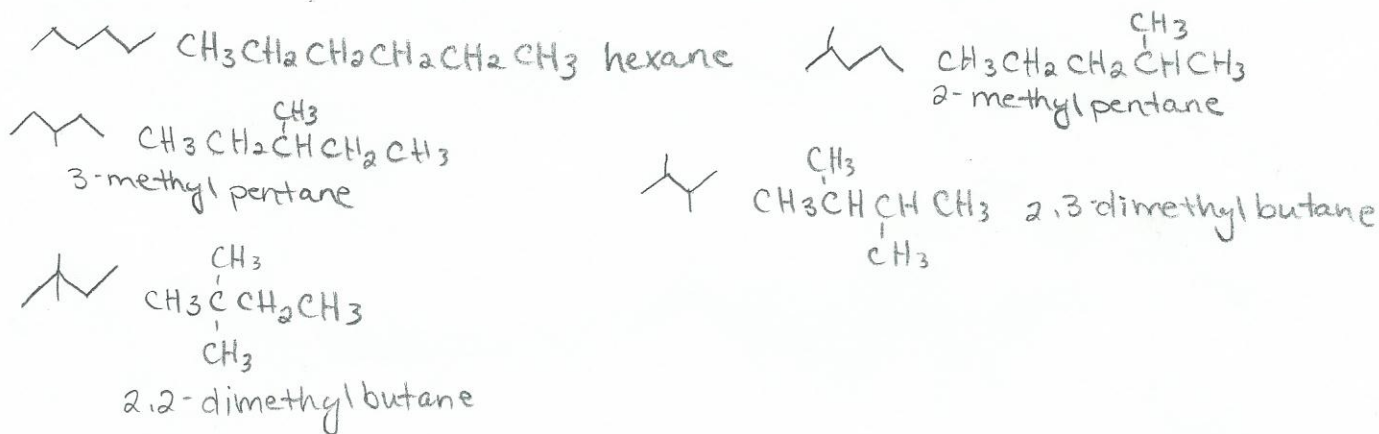 CH3CH2CH2CH2CH2CH3 hexane
CH3
CH3CH2CH2CHCH3
2-methylpentane
CH3
CH3CH2CHCH2CH3
3-methyl pentane
CH3
CH3CHCHCH3 2,3-dimethylbutane
CH3
CH3
CH3CCH2CH3
CH3
2,2-dimethylbutane